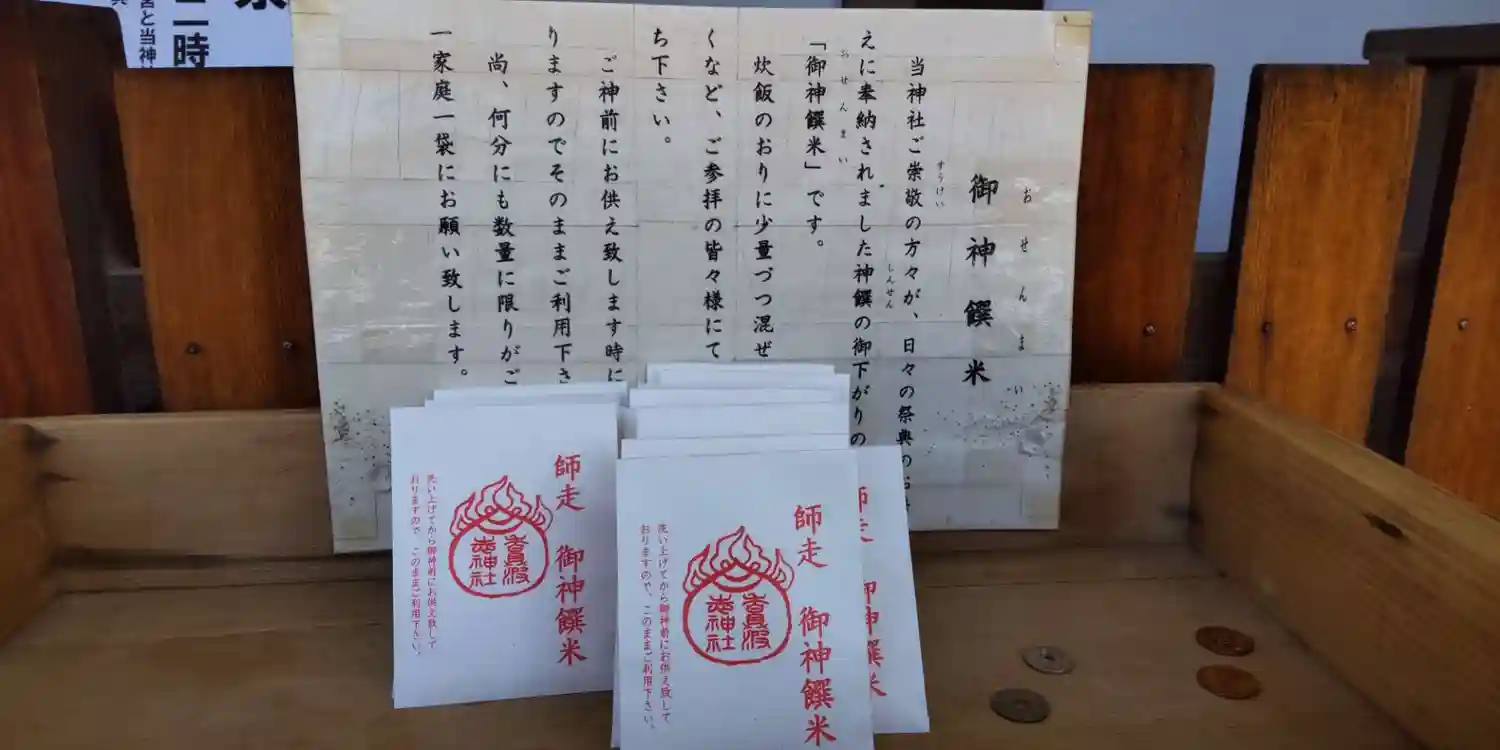 おせんまい
御神饌米
すうけい
当神社ご崇敬の方々が、日々の祭典のお
しんせん
えに奉納されました神饌の御下がりの
おせんまい
「御神饌米」です。
炊飯のおりに少量づつ混ぜ
くなど、ご参拝の皆々様にて
ち下さい。
ご神前にお供え致します時に
りますのでそのままご利用下さ
尚、何分にも数量に限りがご
一家庭一袋にお願い致します。
二時
宮と当神
師走 御神饌米
師走 御神饌米
神社
洗い上げてから御神前にお供え致して
おりますので、このままご利用下さい。
師走 御神饌米
神社
洗い上げてから御神前にお供え致して
おりますので、このままご利用下さい。